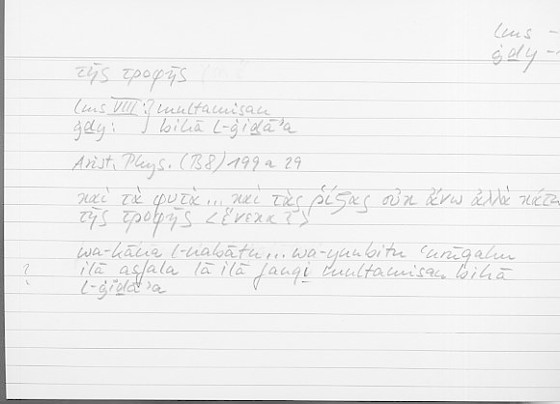 lms -
ġdy -
τῆς τροφῆς
lms VIII: } multamisan
ġdy: } bihā l-ġiḏā’a
Arist. Phys. (B8) 199 a 29
καὶ τὰ φυτὰ ... καὶ τὰς ῥίζας οὐκ ἄνω ἀλλὰ κάτω
τῆς τροφῆς <ἕνεκα ?>
wa-kāna l-nabātu ... wa-yunbitu ‘urūqahu
? ilā asfala lā ilā fawqi multamisan bihā
l-ġiḏā’a